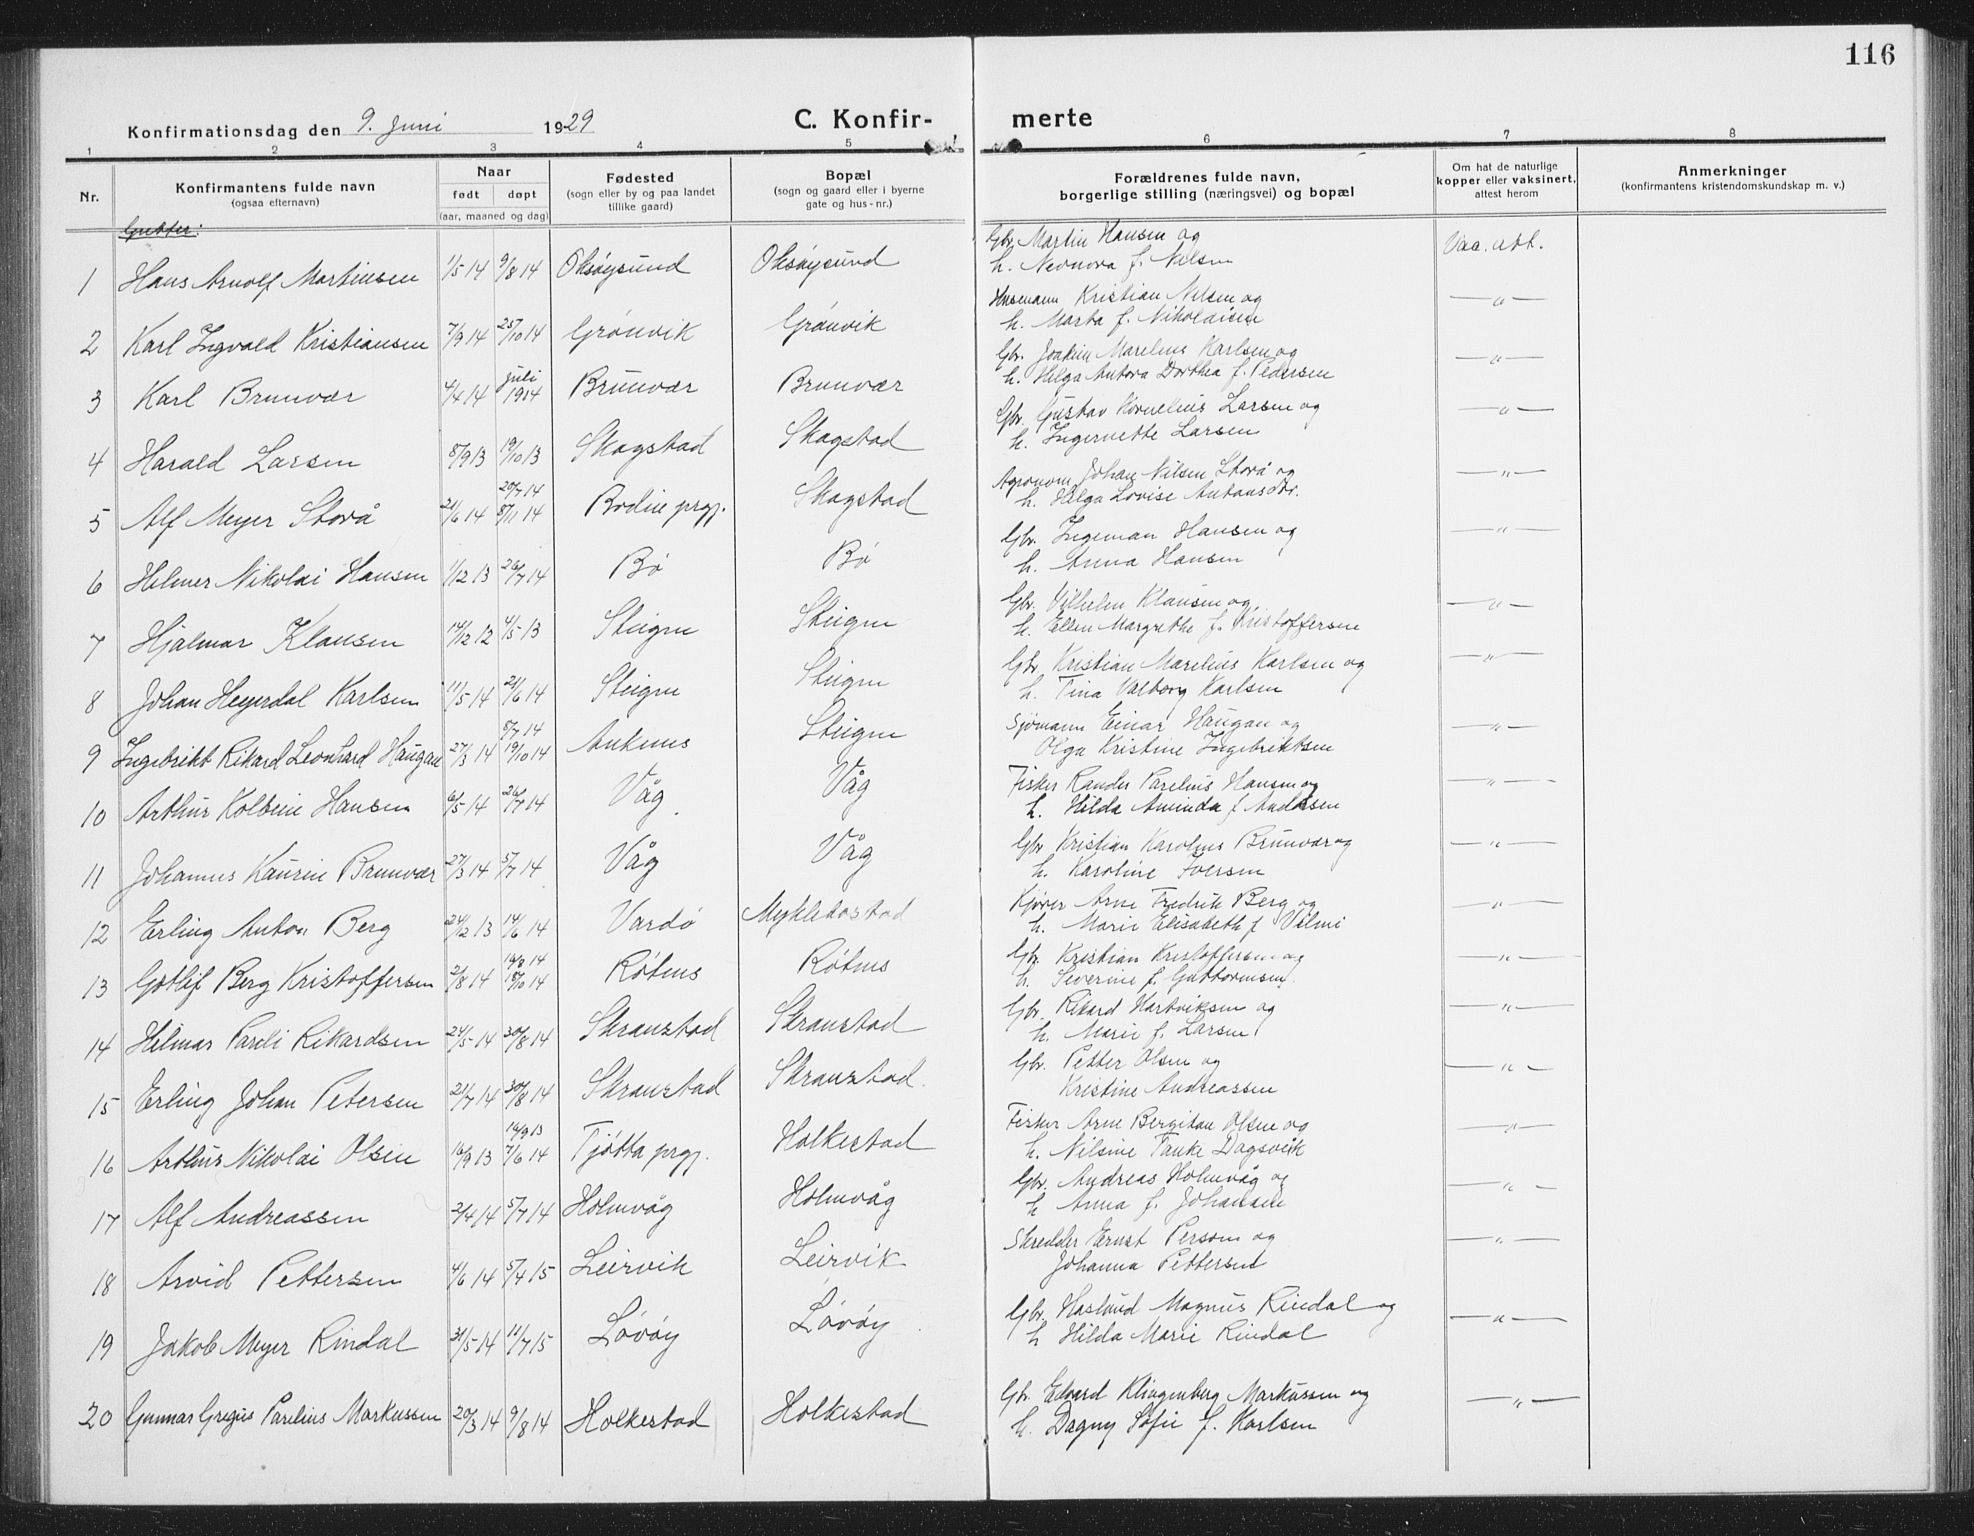 116
Konfirmationsdag den 9. Juni 1929
C. Konfir-merte
1 2 3 4 5 6 7 8
Nr.
Konfirmantens fulde navn
(ogsaa efternavn)
Naar
født døpt
(aar, maaned og dag)
Fødested
(sogn eller by og paa landet
tillike gaard)
Bopæl
(sogn og gaard eller i byerne
gate og hus-nr.)
Forældrenes fulde navn,
borgerlige stilling (næringsvei) og bopæl
Om hat de naturlige
kopper eller vaksinert,
attest herom
Anmerkninger
(konfirmantens kristendomskundskap m. v.)
Gutter:
1 Hans Arnolf Martinsen 1/5 14 9/8 14 Oksøysund Oksøysund Gbr. Martin Hansen og Vaa. att.
h. Neonora f. Nilsen
2 Karl Ingvald Kristiansen 7/9 14 25/10 14 Grønvik Grønvik Husmann Kristian Nilsen og —"—
h. Marta f. Nikolaisen
3 Karl Brunvær 4/4 14 juli 1914 Brunvær Brunvær Gbr. Joakim Marelius Karlsen og —"—
h. Helga Antora Dorthea f. Pedersen
4 Harald Larsen 8/9 13 19/10 13 Skagstad Skagstad Gbr. Gustav Kornelius Larsen og —"—
h. Ingernette Larsen
5 Alf Meyer Storå 21/6 14 20/7 14 8/11 14 Bodin prgj. Skagstad Agronom Johan Nilsen Storå og —"—
h. Helga Lovise Antonsdtr.
6 Helmer Nikolai Hansen 1/12 13 26/7 14 Bø Bø Gbr. Ingeman Hansen og —"—
h. Anna Hansen
7 Hjalmar Klausen 14/12 12 4/5 13 Steigen Steigen Gbr. Vilhelm Klausen og —"—
h. Ellen Margrethe f. Kristoffersen
8 Johan Heyerdal Karlsen 11/5 14 21/6 14 Steigen Steigen Gbr Kristian Marelius Karlsen og —"—
h. Tina Valborg Karlsen
9 Ingebrikt Rikard Leonhard Haugan 27/3 14 8/7 14 19/10 14 Anknes Steigen Sjømann Einar Haugan og —"—
Olga Kristine Ingebriktsen
10 Arthur Kolbein Hansen 6/5 14 26/7 14 Våg Våg Fisker Rander Parelius Hansen og —"—
h. Hilda Aminda f. Andersen
11 Johannes Kaurin Brunvær 27/3 14 5/7 14 Våg Våg Gbr Kristian Karolius Brunvær og —"—
h. Karoline Iversen
12 Erling Anton Berg 24/12 13 14/6 14 Vardø Myklebostad Kjører Arne Fredrik Berg og —"—
h. Marie Elisabeth f Vilmi
13 Gotlif Berg Kristoffersen 2/8 14 14/8 14 18/10 14 Røtnes Røtnes Gbr. Kristian Kristoffersen og —"—
h. Severine f. Guttormsen.
14 Helmar Pareli Rikardsen 24/5 14 30/8 14 Skranstad Skranstad Gbr. Rikard Hartviksen og —"—
h. Marie f. Larsen
15 Erling Johan Petersen 21/7 14 30/8 14 Skranstad Skranstad. Gbr. Petter Olsen og —"—
Kristine Andreassen
16 Arthur Nikolai Olsen 16/9 13 19/9 13 7/6 14 Tjøtta prgj. Holkestad Fisker Arne Bergitan Olsen og —"—
h. Nilsine Tanke Dagsvik
17 Alf Andreassen 2/4 14 5/7 14 Holmvåg Holmvåg Gbr. Andreas Holmvåg og —"—
h Anna f. Johansen
18 Arvid Pettersen 4/6 14 5/4 15 Leirvik Leirvik Skredder Ernst Persom og —"—
Johanna Pettersen
19 Jakob Meyer Rindal 31/5 14 11/7 15 Løvøy Løvøy Gbr. Haslund Magnus Rindal og —"—
h Hilda Marie Rindal
20 Gunnar Gregus Parelius Markussen 20/3 14 9/8 14 Holkestad Holkestad Gbr. Edvard Klingenberg Markussen og —"—
h. Dagny Sofie f. Karlsen